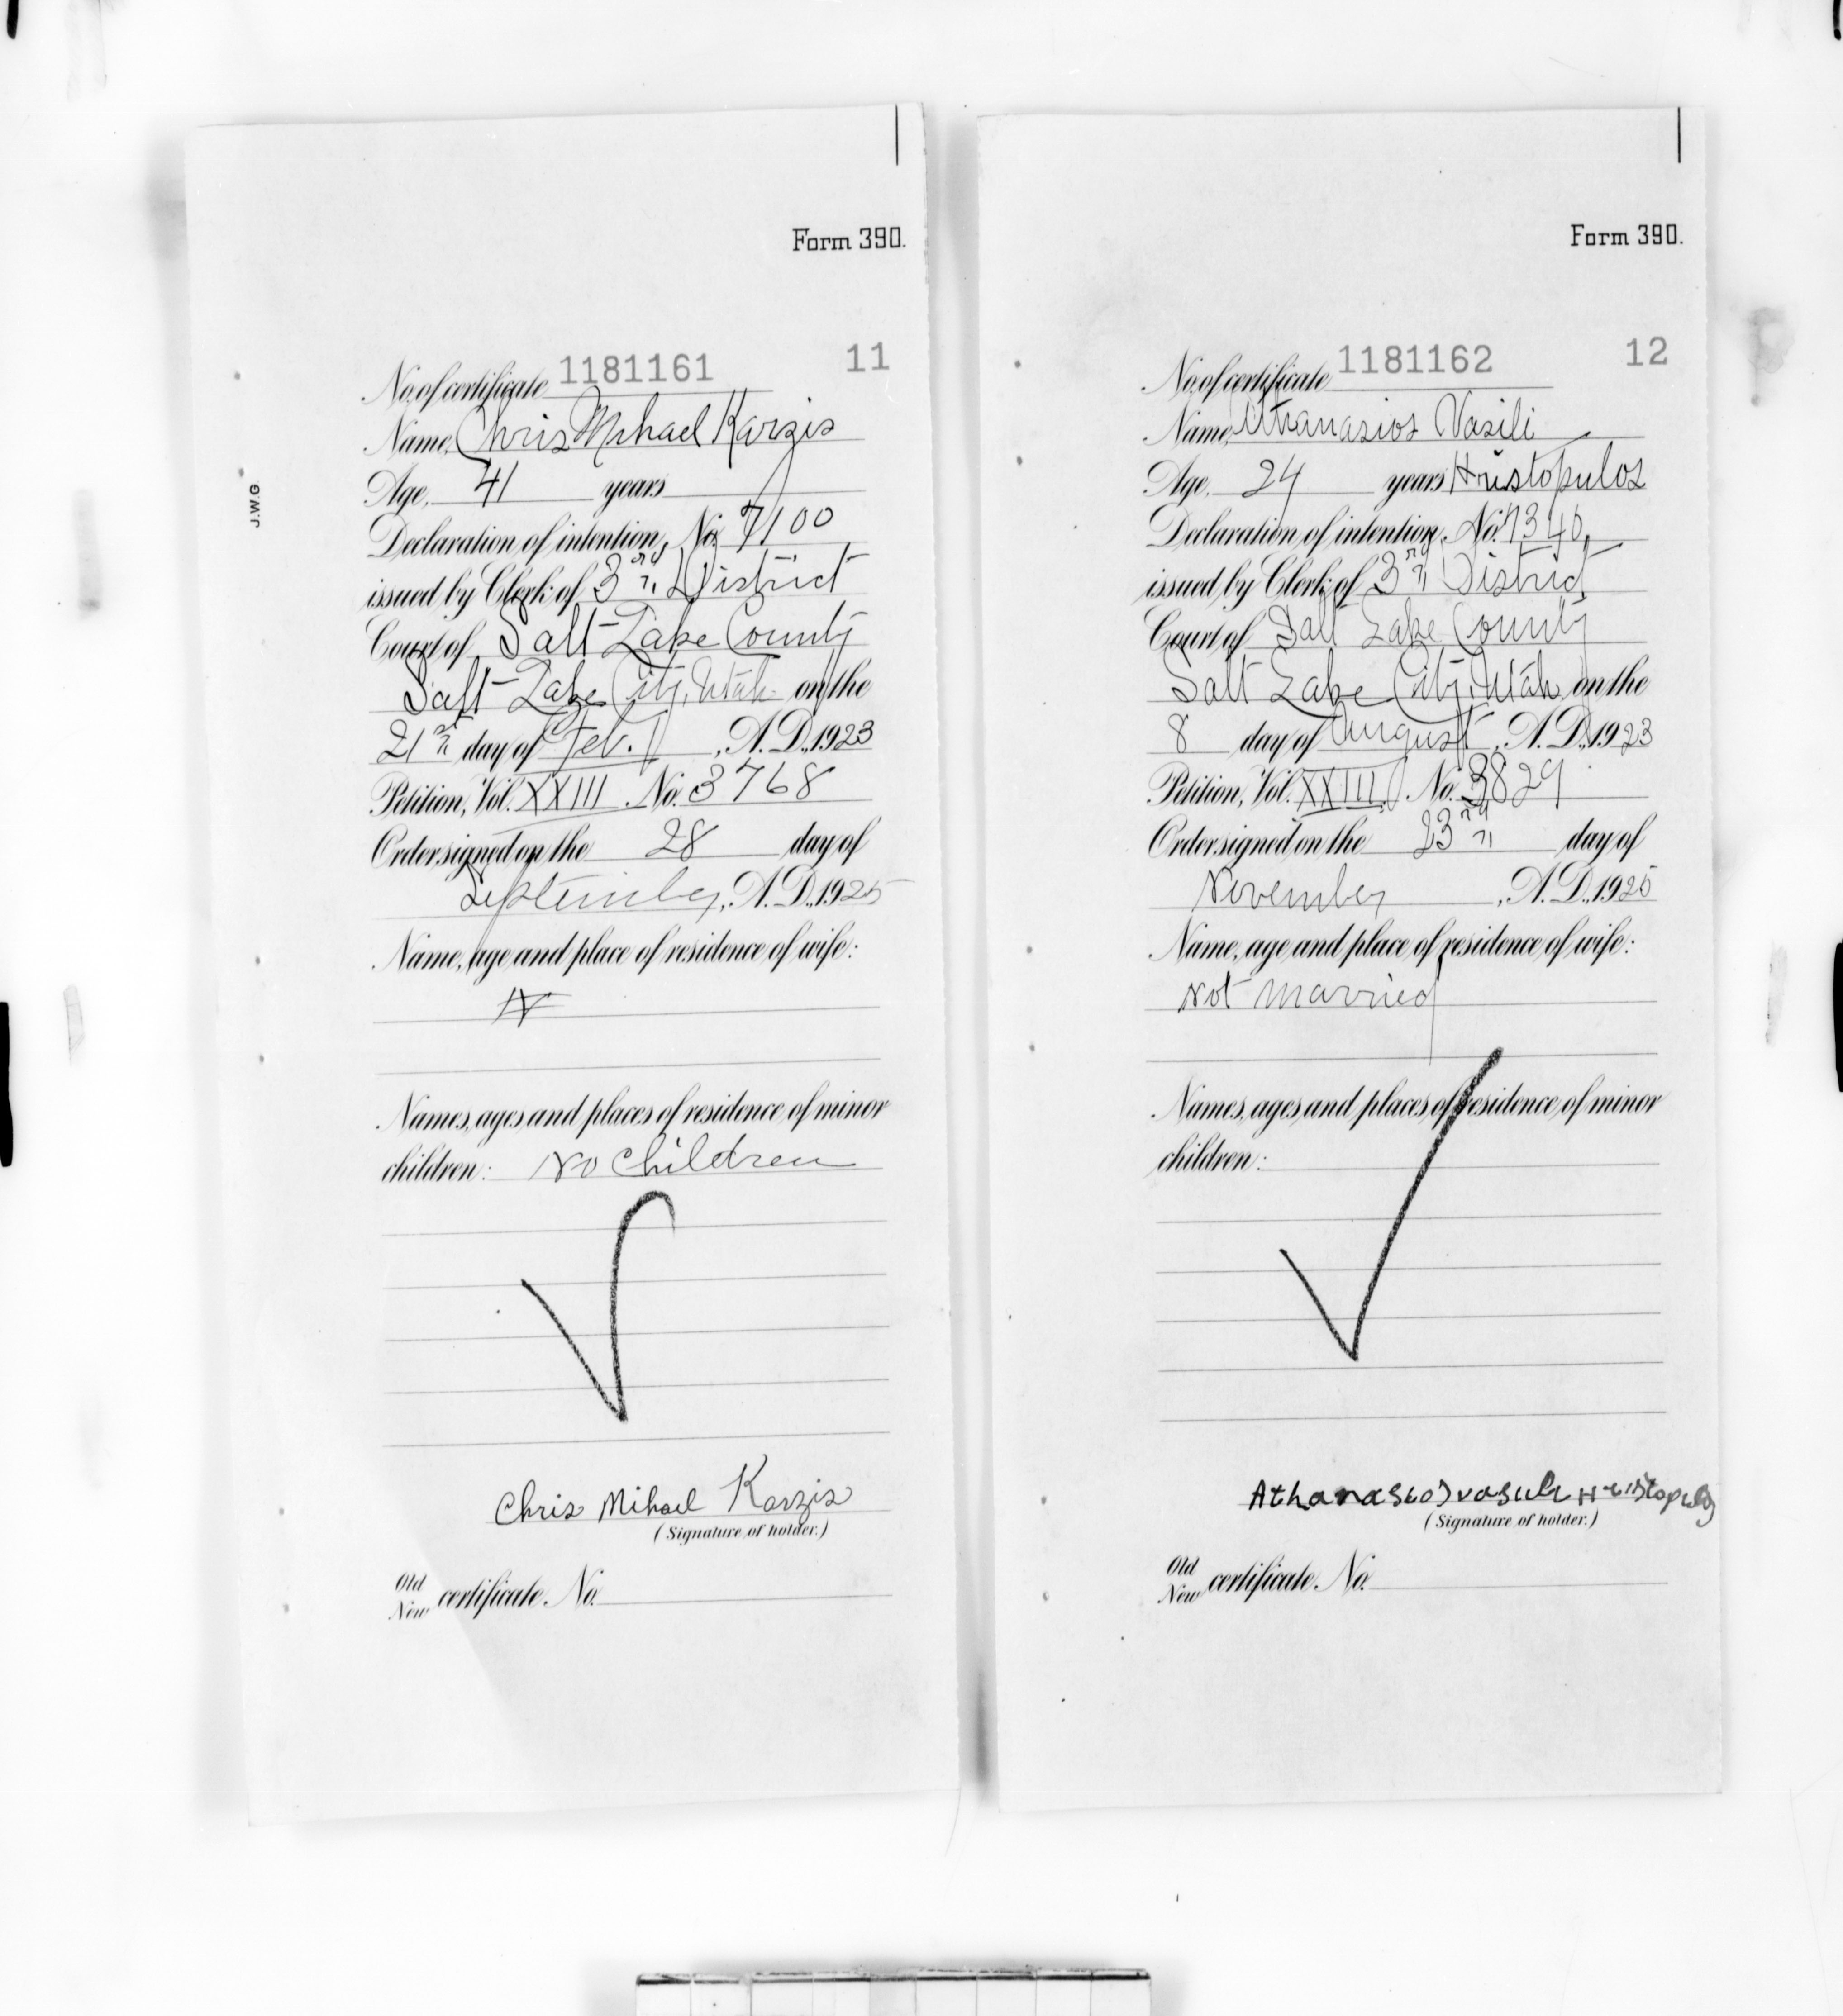 Form 390.
J.W.G
No. of certificate 1181161 11
Name, Chris Mihael Karzis
Age, 41 years
Declaration of intention, No. 7100
issued by Clerk of 3rd District
Court of Salt Lake County
Salt Lake City, Utah on the
21st day of Feb., A.D., 1923
Petition, Vol. XXIII No. 3768
Order signed on the 28 day of
September, A.D., 1925
Name, age and place of residence of wife:
Names, ages and places of residence of minor
children: No Children
Chris Mihael Karzis
(Signature of holder.)
Old
New certificate No.
Form 390.
No. of certificate 1181162 12
Name, Athanasios Vasili
Age, 24 years Hristopulos
Declaration of intention, No. 7340,
issued by Clerk of 3rd District
Court of Salt Lake County
Salt Lake City, Utah on the
8 day of August, A.D., 1923
Petition, Vol. XXIII, No. 3829
Order signed on the 23rd day of
November, A.D., 1925
Name, age and place of residence of wife:
Not Married
Names, ages and places of residence of minor
children:
Athanasios Vasili Hristopulos
(Signature of holder.)
Old
New certificate No.